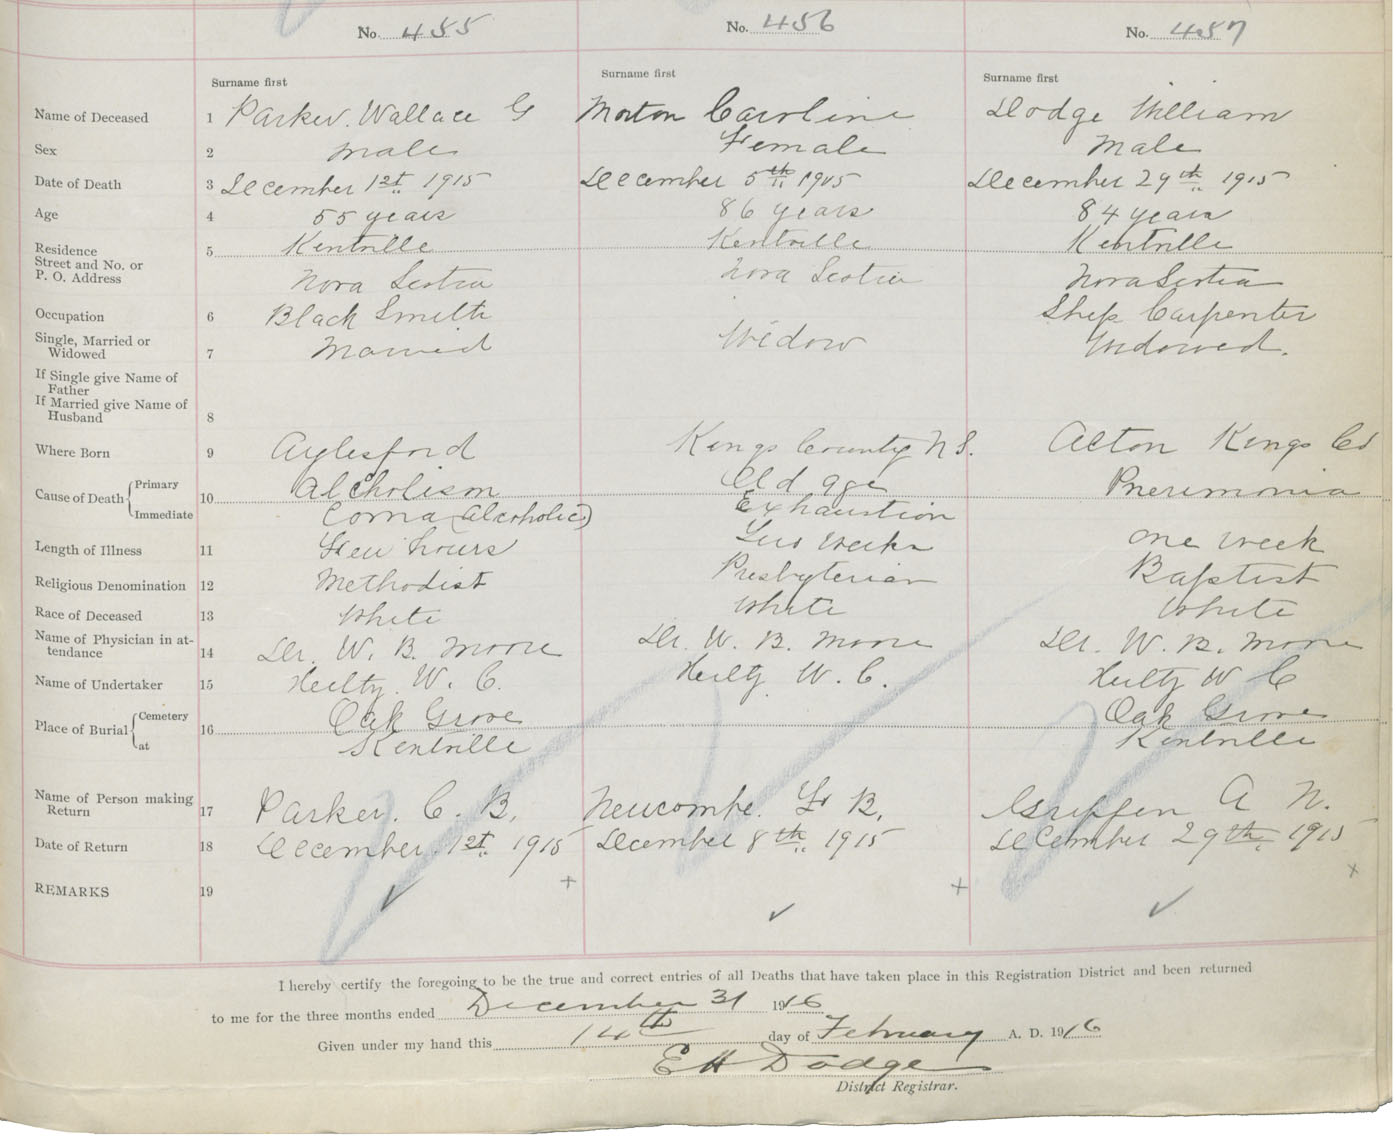 No. 455 No. 456 No. 457
Surname first Surname first Surname first
Name of Deceased 1 Parker. Wallace G Morton Caroline Dodge William
Sex 2 male Female Male
Date of Death 3 December 1st 1915 December 5th 1915 December 29th 1915
Age 4 55 years 86 years 84 years
Residence 5 Kentville Kentville Kentville
Street and No. or
P. O. Address Nova Scotia Nova Scotia Nova Scotia
Occupation 6 Black Smith Ship Carpenter
Single, Married or
Widowed 7 Married Widow Widowed.
If Single give Name of
Father
If Married give Name of
Husband 8
Where Born 9 Aylesford Kings County N S. Alton Kings Co
Cause of Death Primary 10 Alcholism Old age Pneumonia
Immediate Coma (alcoholic) Exhaustion
Length of Illness 11 Few hours Two weeks one week
Religious Denomination 12 Methodist Presbyterian Baptist
Race of Deceased 13 White White White
Name of Physician in at-
tendance 14 Dr. W. B. Moore Dr. W. B. Moore Dr. W. B. Moore
Name of Undertaker 15 Hiltz. W. C. Hiltz W. C. Hiltz W C
Place of Burial Cemetery 16 Oak Grove Oak Grove
at Kentville Kentville
Name of Person making
Return 17 Parker. C. B. Newcombe. F B. Griffin A N.
Date of Return 18 December 1st. 1915 December 8th 1915 December 29th. 1915
REMARKS 19 + + x
I hereby certify the foregoing to be the true and correct entries of all Deaths that have taken place in this Registration District and been returned
to me for the three months ended December 31 1916
Given under my hand this 14th day of February A. D. 1916
E H Dodge
District Registrar.